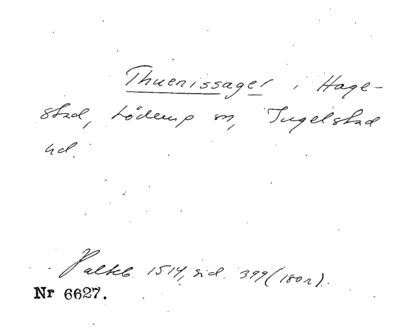 Thuenissager i Hage-
stad, Löderup sn, Ingelstad
hd.
Palteb. 1514, sid. 399 (180r).
Nr 6627.